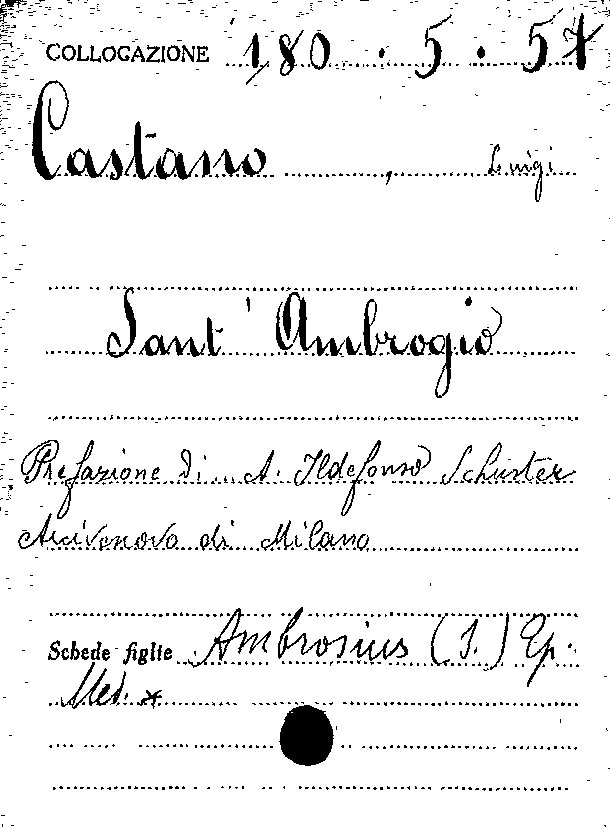 COLLOCAZIONE 180.5.54
Castano, Luigi
Sant' Ambrogio
Prefazione di A. Ildefonso Schuster
Arcivescovo di Milano
Schede figlie Ambrosius (S.) Ep.
Med. *